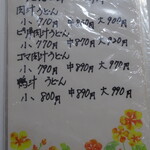 肉汁うどん
小、710円 中810円 大900円
ピリ辛肉汁うどん
小、770円 中870円 大970円
ゴマ肉汁うどん
小、790円 中890円 大990円
鴨汁うどん
小、800円 中890円 大990円